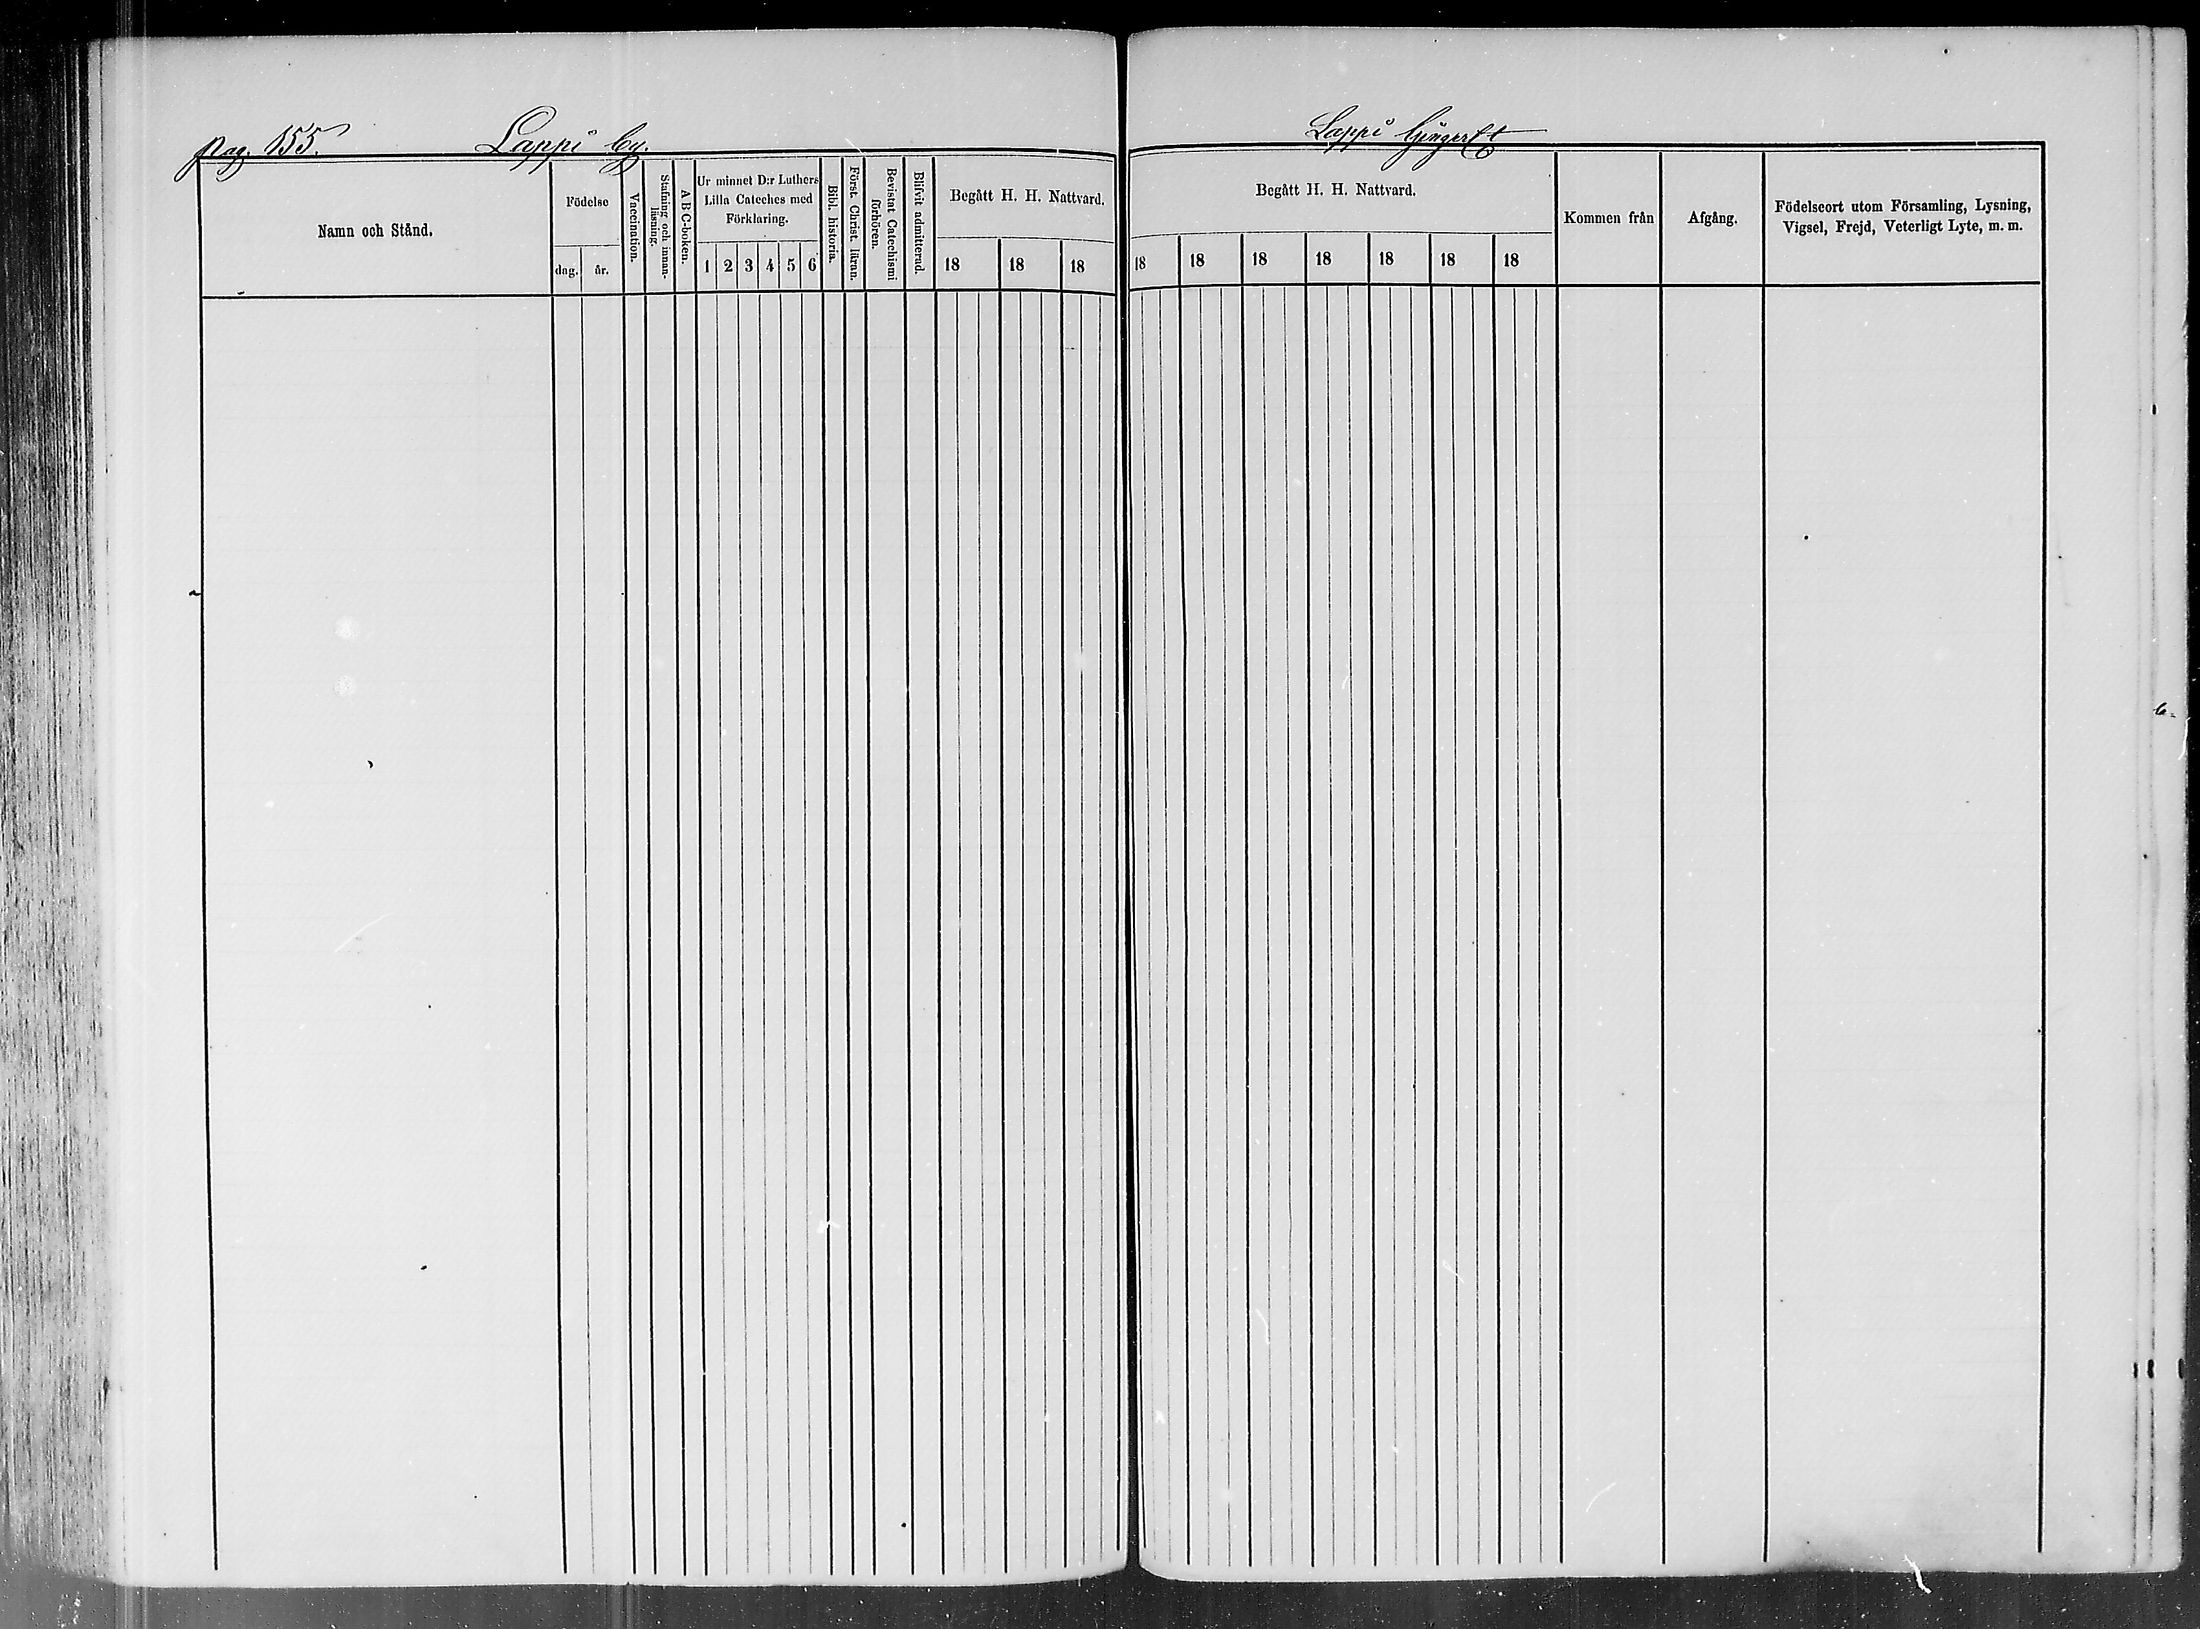 Pag. 155.
Lappi by.
Lappi
Namn och Stånd.
Födelse
dag. år.
Vaccination.
Stafning och innan-
läsning.
A B C-boken.
Ur minnet D:r Luthers
Lilla Cateches med
Förklaring.
1 2 3 4 5 6
Bibl. historia.
Först. Christ. läran.
Bevistat Catechismi
förhören.
Blifvit admitterad.
Begått H. H. Nattvard.
18 18 18
Begått H. H. Nattvard.
18 18 18 18 18 18 18
Kommen från
Afgång.
Födelseort utom Församling, Lysning,
Vigsel, Frejd, Veterligt Lyte, m. m.